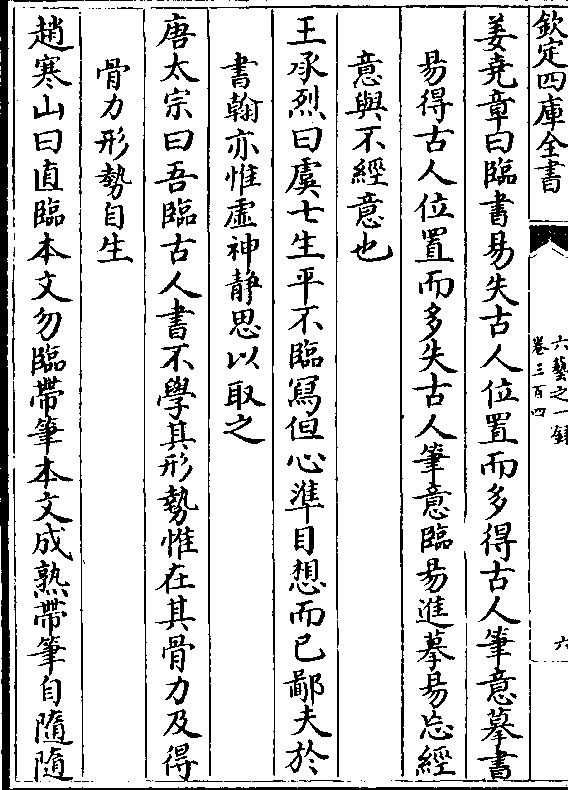 欽定四庫全書
六藝之一錄
卷三百四
六
姜堯章曰臨書易失古人位置而多得古人筆意摹書
易得古人位置而多失古人筆意臨易進摹易忘經
意與不經意也
王承烈曰虞七生平不臨寫但心準目想而已鄙夫於
書翰亦惟虛神靜思以取之
唐太宗曰吾臨古人書不學其形勢惟在其骨力及得
骨力形勢自生
趙寒山曰直臨本文勿臨帶筆本文成熟帶筆自隨隨